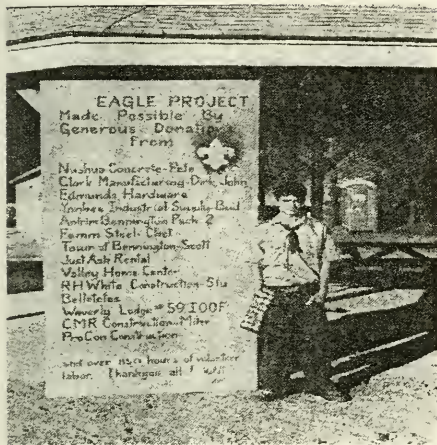 EAGLE PROJECT
Made Possible By
Generous Donations
from
Nashua Concrete-Pete
Clark Manufacturing-Dick, John
Edmunds Hardware
Yankee Industrial Supply-
Antrim Bennington Pack 2
Famm Steel-Chet
Town of Bennington-Scott
Just Ask Rental
Valley Home Center
RH White Construction-Stu
Belletetes
Waverly Lodge #59 IOOF
CMR Construction-Mike
ProCon Construction
and over hours of volunteer
labor. Thankyou all!